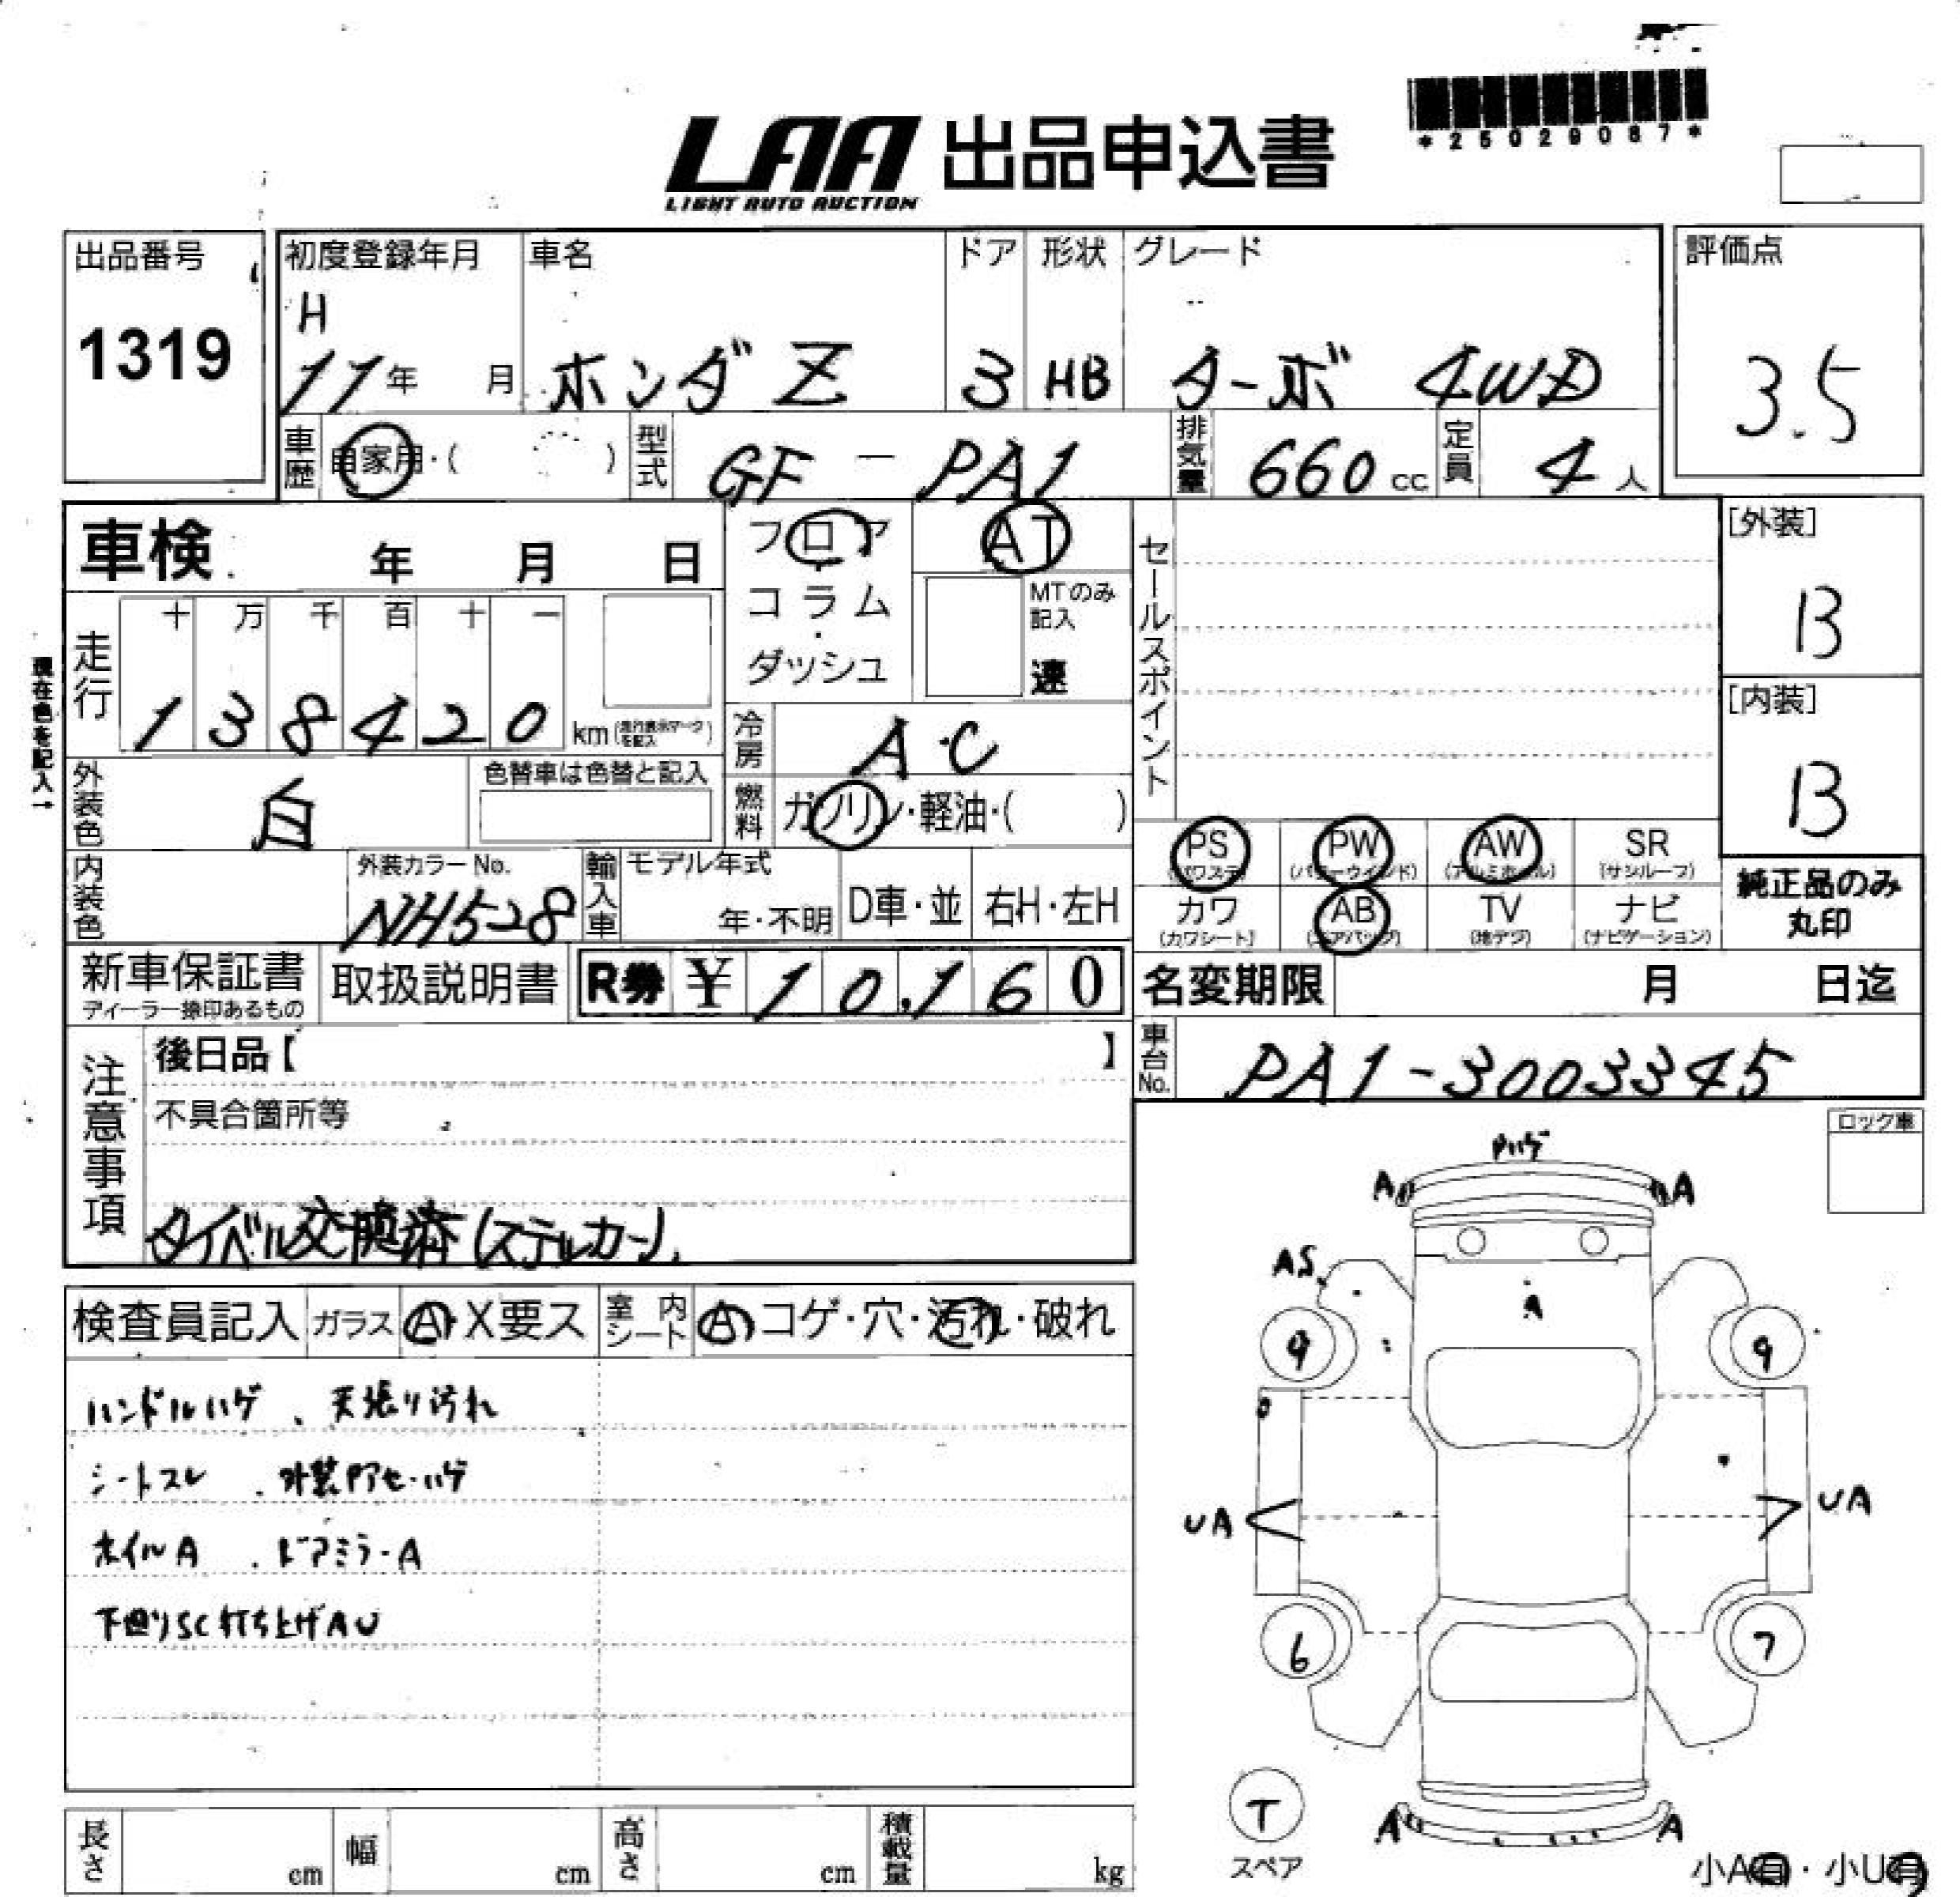 *25029087*
LAA 出品申込書
LIGHT AUTO AUCTION
出品番号 初度登録年月 車名 ドア 形状 グレード 評価点
H
1319 11年 月 ホンダ Z 3 HB ターボ 4WD 3.5
車歴 自家用・( ) 型式 GF-PA1 排気量 660cc 定員 4人
車検 年 月 日 フロア AT セールスポイント [外装]
B
コラム MTのみ記入
・
ダッシュ 速
走行 十 万 千 百 十 一
1 3 8 4 2 0 km(走行表示マークを記入)
[内装]
B
現在色を記入→
冷房 A・C
外装色 白 色替車は色替と記入
燃料 ガソリン・軽油・( )
PS PW AW SR
(パワステ) (パワーウィンド) (アルミホイル) (サンルーフ)
カワ AB TV ナビ
(カワシート) (エアバッグ) (地デジ) (ナビゲーション)
純正品のみ
丸印
内装色 外装カラーNo. NH528 輸入車 モデル年式 年・不明 D車・並 右H・左H
新車保証書 取扱説明書 R券 ¥10,160 名変期限 月 日迄
ディーラー捺印あるもの
注意事項 後日品【 】 車台No. PA1-3003345
不具合箇所等
タイベル交換済(ステルカー)
ロック車
検査員記入 ガラス A・X要ス 室内シート A・コゲ・穴・汚れ・破れ
ハンドルハゲ、天張り汚れ
シートスレ、外装アセ・ハゲ
ホイルA、ドアミラーA
下廻りSC打ち上げAU
ハゲ
A A
AS
A
9 9
UA UA
6 7
T
スペア
A A
小A有・小U有
長さ cm 幅 cm 高さ cm 積載量 kg